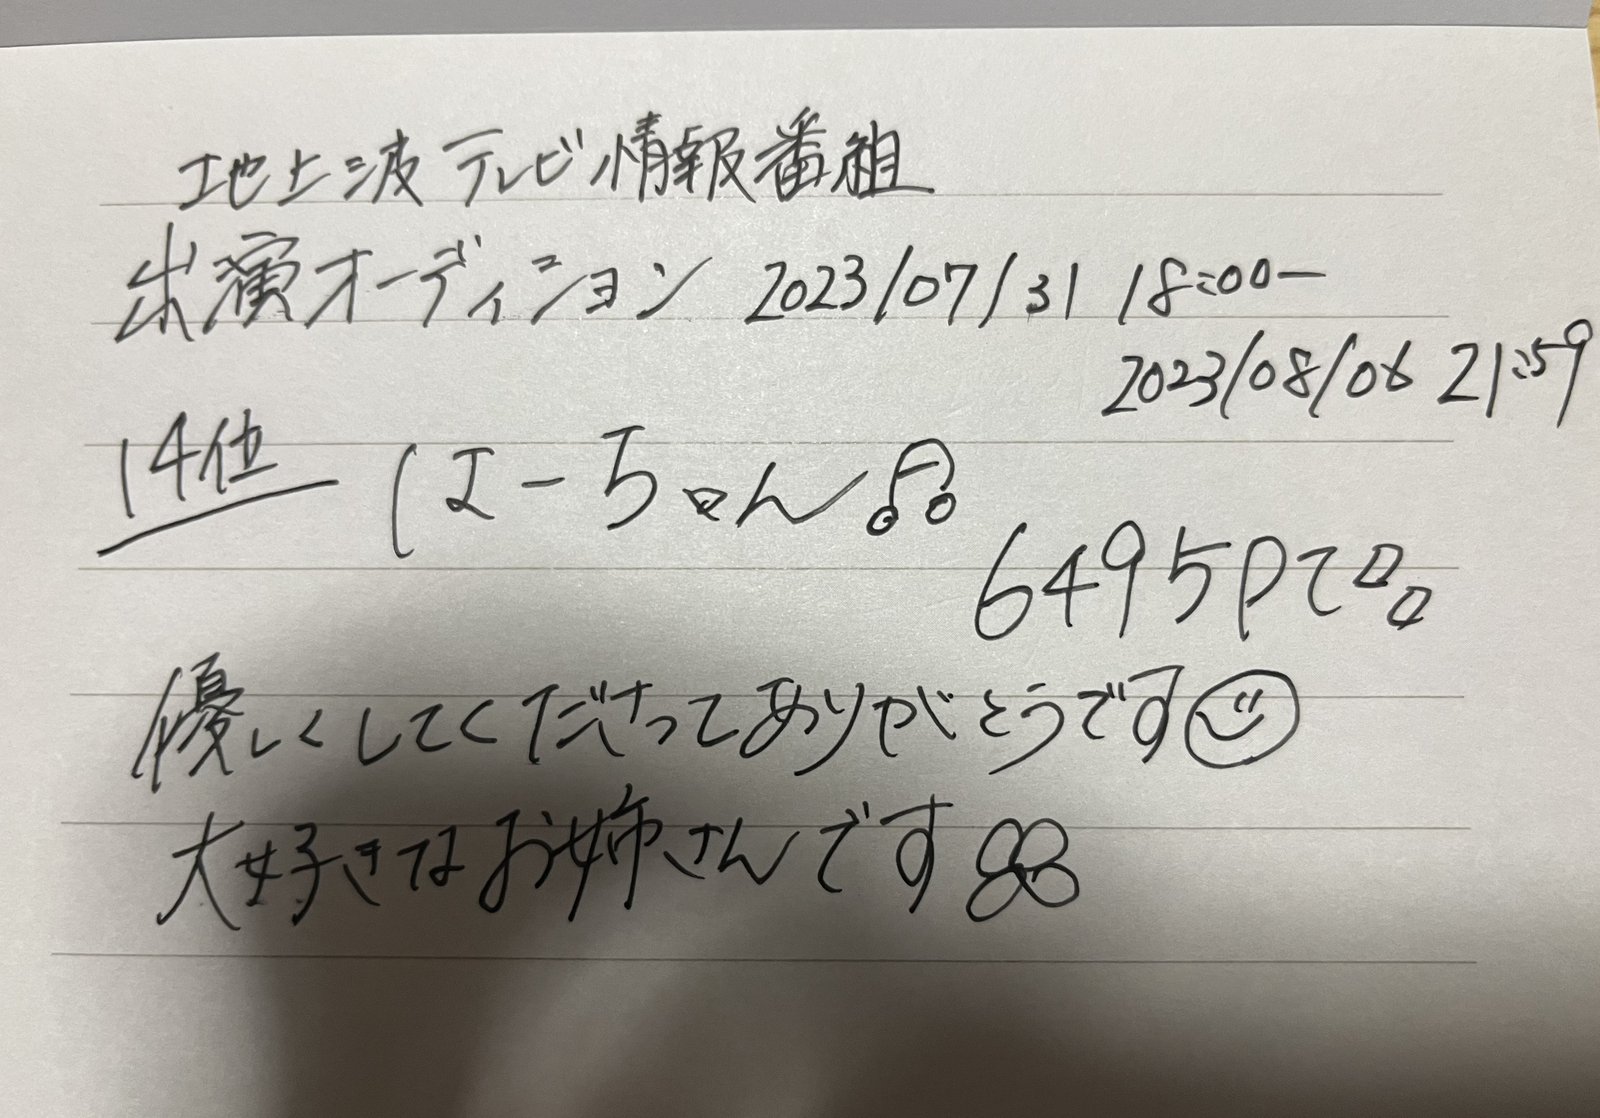 地上波テレビ情報番組
出演オーディション 2023/07/31 18:00ー
2023/08/06 21:59
14位 はーちゃん♫
6495pt
優しくしてくださってありがとうです
大好きなお姉さんです